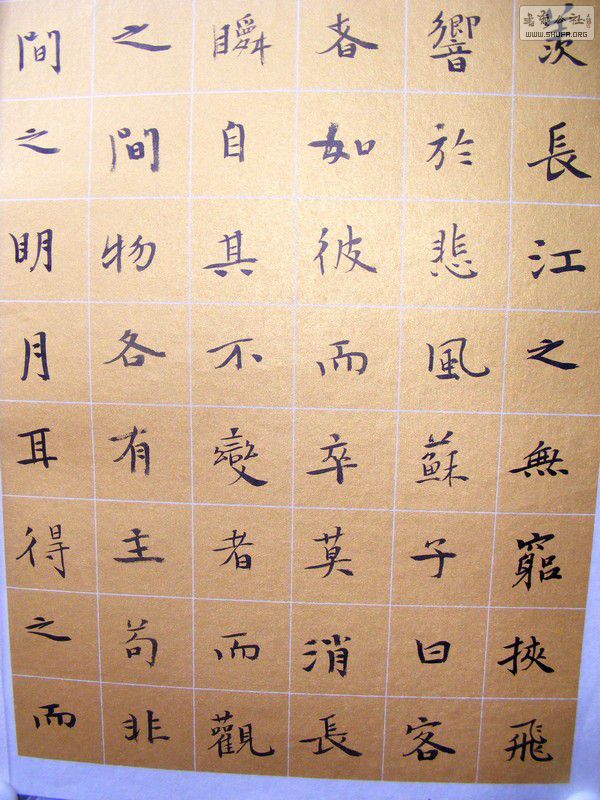 羨長江之無窮挾飛
響於悲風蘇子曰客
者如彼而卒莫消長
瞬自其不變者而觀
之間物各有主苟非
間之明月耳得之而
WWW.SHUFA.ORG